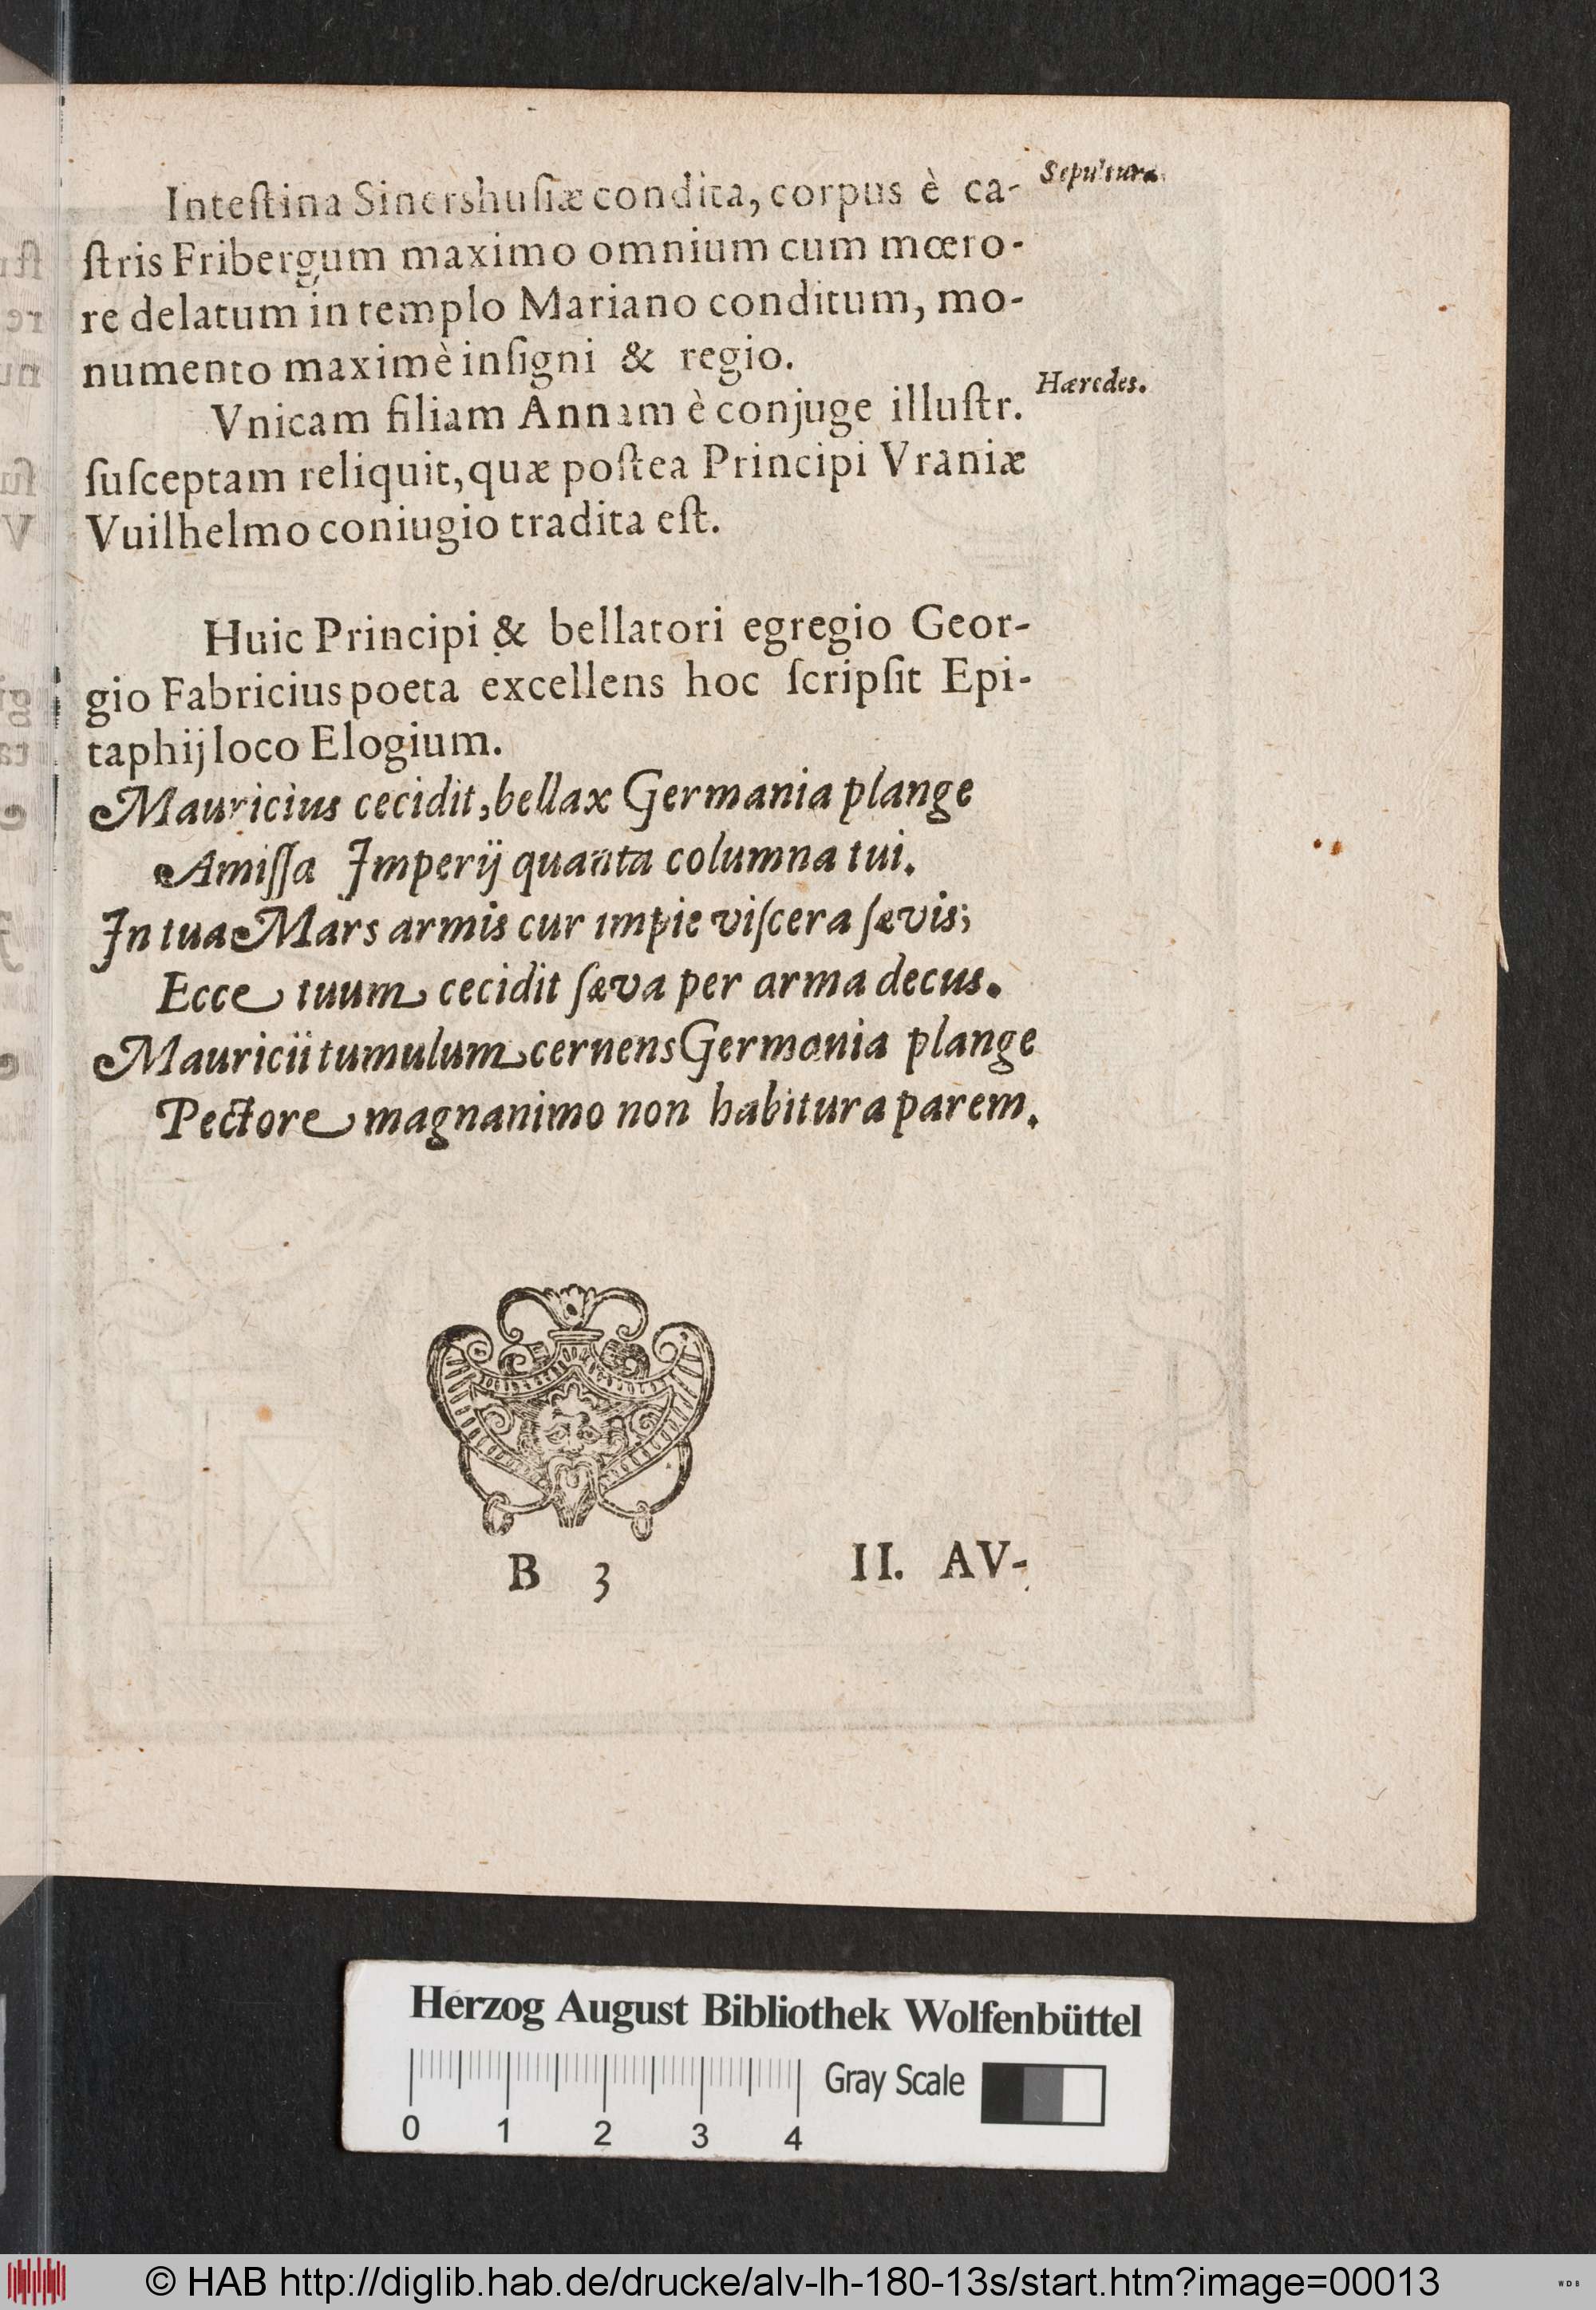 Inteſtina Sinershuſiæ condita, corpus è ca-
Sepultura.
ſtris Fribergum maximo omnium cum mœro-
re delatum in templo Mariano conditum, mo-
numento maximè inſigni & regio.
Hæredes.
Vnicam filiam Annam è conjuge illuſtr.
ſuſceptam reliquit, quæ poſtea Principi Vraniæ
Vuilhelmo coniugio tradita eſt.
Huic Principi & bellatori egregio Geor-
gio Fabricius poeta excellens hoc ſcripſit Epi-
taphij loco Elogium.
Mauricius cecidit, bellax Germania plange
Amiſſa Imperij quanta columna tui.
In tua Mars armis cur impie viſcera ſævis;
Ecce tuum cecidit ſæva per arma decus.
Mauricii tumulum cernens Germania plange
Pectore magnanimo non habitura parem.
B 3
II. AV-
Herzog August Bibliothek Wolfenbüttel
Gray Scale
0 1 2 3 4
© HAB http://diglib.hab.de/drucke/alv-lh-180-13s/start.htm?image=00013
WDB